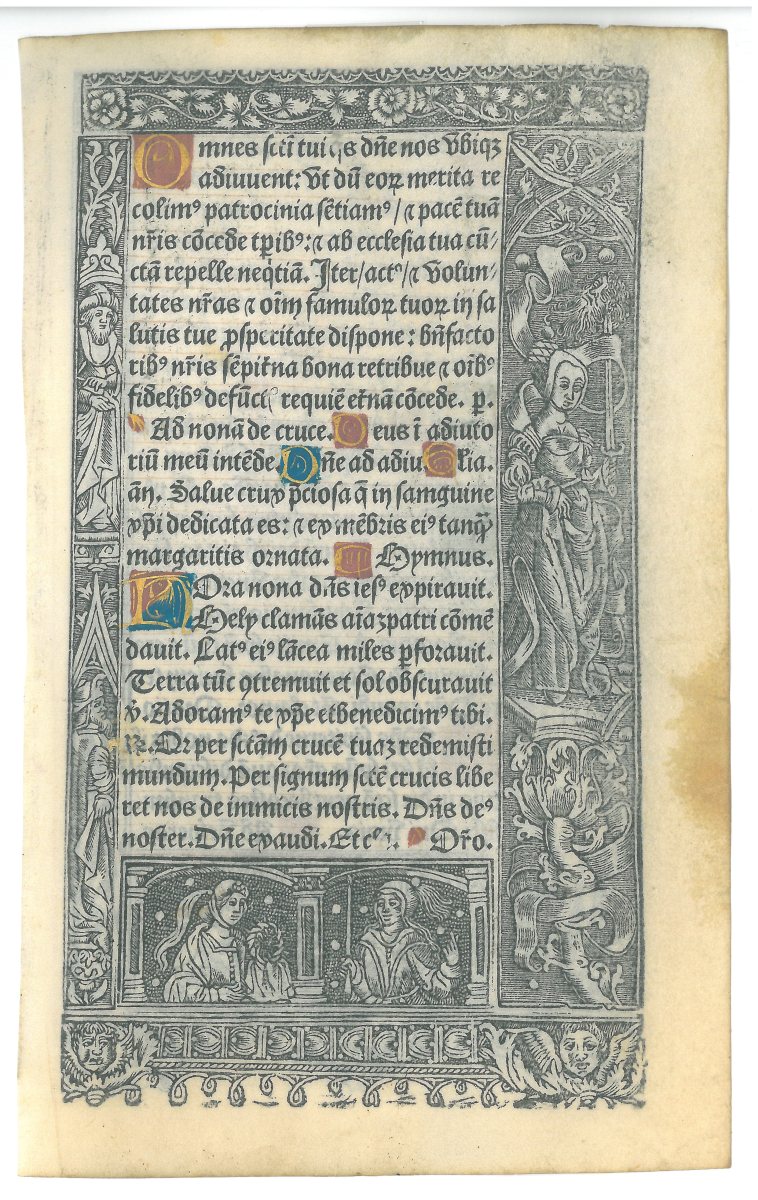 Omnes sctī tui q̄s dn̄e nos vbiqꝫ
adiuuent: vt dū eoꝝ merita re
colimꝰ patrocinia sētiamꝰ/⁊ pacē tuā
nr̄is cōcede tp̄ibꝰ:⁊ ab ecclesia tua cū/
ctā repelle neq̄tiā. Iter/actꝰ/⁊ volun/
tates nr̄as ⁊ oīm famuloꝝ tuoꝝ in sa
lutis tue ꝓsperitate dispone: bn̄facto
ribꝰ nr̄is sēpit̄na bona retribue ⁊ oībꝰ
fidelibꝰ defūct requiē et̄nā cōcede. p.
Ad nonā de cruce. Deus ī adiuto
riū meū intēde. Dn̄e ad adiu. Gl̄ia.
ān. Salue crux p̄ciosa q̄ in samguine
xp̄i dedicata es: ⁊ ex mēbris eiꝰ tanq̄
margaritis ornata. Hymnus.
HOra nona dn̄s iesꝰ expirauit.
Hely clamās aīaꝫ patri cōmē
dauit. Latꝰ eiꝰ lācea miles ꝑforauit.
Terra tūc ꝯtremuit et sol obscurauit
v̄. Adoramꝰ te xp̄e et benedicimꝰ tibi.
℟. Qꝛ per sctām crucē tuaꝫ redemisti
mundum. Per signum sctē crucis libe
ret nos de inimicis nostris. Dn̄s deꝰ
noster. Dn̄e exaudi. Et Or̄o.